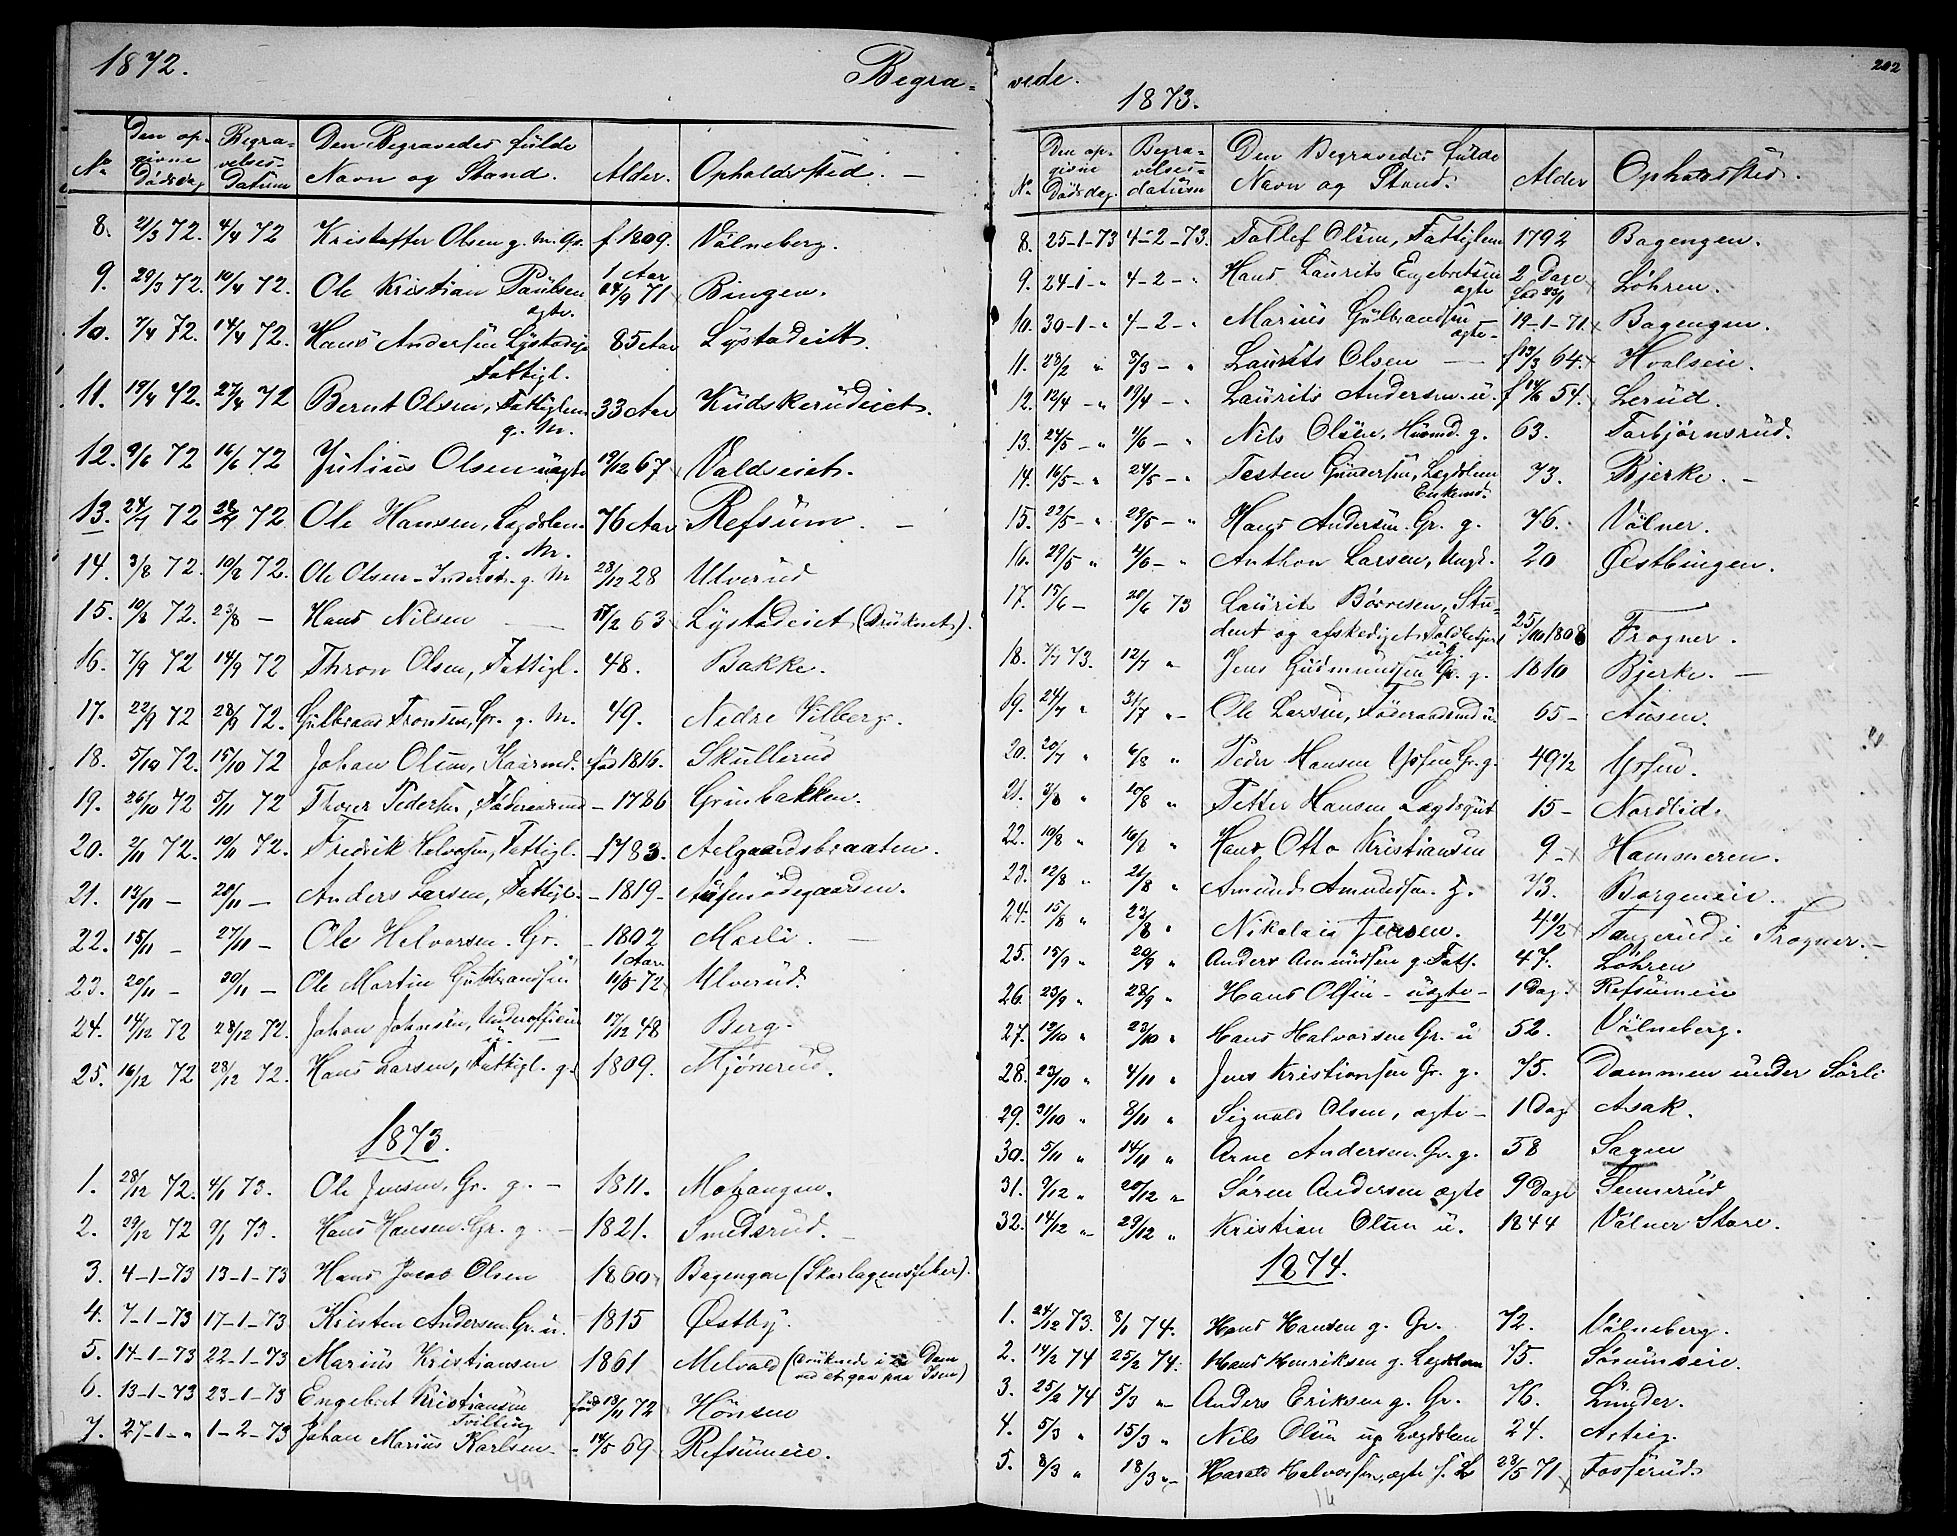 1872.
Begra-
No
Den op-
givne
Dødsdag
Begra-
velses-
Datum
Den Begravedes fulde
Navn og Stand.
Alder.
Opholdssted. —
8. 21/3 72. 4/4 72 Kristoffer Olsen g. M. Gr. f 1809. Vølneberg.
9. 29/3 72. 10/4 72. Ole Kristian Paulsen ægte. 1 Aar 71 Bingen.
10. 7/4 72. 14/4 72. Hans Andersen Lystadeje Fattigl. 85 Aar Lystadeiet.
11. 19/4 72. 27/4 72 Bernt Olsen, Fattiglem g. M. 33 Aar Kudskerudeiet.
12. 9/6 72 16/6 72 Julius Olsen uægte 19/12 67 Valdseiet.
13. 24/7 72 72 Ole Hansen, Lægdslem g. M. 76 Aar Refsum. —
14. 3/8 72. 10/8 72. Ole Olsen - Inderst. g. M 28/12 28 Ulverud
15. 10/8 72. 23/8 — Hans Nilsen — 63 Lystadeiet (Druknet).
16. 7/9 72 14/9 72 Thron Olsen, Fattigl. 48. Bakke.
17. 22/9 72 28/9 72. Gulbrand Tronsen, Gr. g. M. 49. Nedre Vilberg.
18. 5/10 72. 15/10 72 Johan Olsen, Kaarmd. fød 1816. Skullerud
19. 26/10 72 5/11 72 Thorer Pedersen, Føderaadsmd — 1786 Grinbakken.
20. 2/11 72. 10/11 72. Fredrik Halvorsen, Fattigl. — 1783. Aelgaardsbraaten.
21. 13/11 — 20/11 — Anders Larsen, Fattigl. — 1819 -
22. 15/11 — 27/11 — Ole Halvorsen. Gr. — 1802 Moeli. —
23. 20/11 — 30/11 — Ole Martin Gulbrandsen 1 Aar 72 Ulverud.
24. 14/12 72 28/12 72. Johan Johnsen, Underofficier u. — 17/12 48 Berg.
25. 16/12 72 28/12 72. Hans Larsen, Fattigl. g. 1809. Mjønerud.
1873.
1. 28/12 72. 4/1 73. Ole Jensen, Gr. g. — 1811. Mohangen.
2. 29/12 72 9/1 73. Hans Hansen. Gr. g. — 1821. Smedsrud. —
3. 4-1-73 13-1-73 Hans Jacob Olsen 1860 Bagengen (Skarlagensfeber).
4. 7-1-73 17-1-73 Kristen Andersen Gr. u. 1815 Østby.
5. 14-1-73 22-1-73 Marius Kristiansen 1861 Melvold (druknede i en Dam ved at gaa paa Isen)
6. 13-1-73 23-1-73 Engebret Kristiansen Tvilling fød 13/11 72 Hønsen
7. 27-1-" 1-2-73 Johan Marius Karlsen — 14/5 69 Refsumeie.
49
vede.
202
1873.
No
Den op-
givne
Dødsdag
Begra-
velses-
datum
Den Begravedes fulde
Navn og Stand.
Alder
Opholdssted.
8. 25-1-73 4-2-73. Tollef Olsen, Fattiglem 1792 Bagengen.
9. 24-1-" 4-2-" Hans Laurits Engebretsen ægte 2 Dage fød 23/1 Løhren.
10. 30-1-" 4-2-" Marius Gulbrandsen ægte- 19-1-71 Bagengen.
11. 23/2 " 3/3 - " Laurits Olsen — f 13/3 64. Hvalseie.
12. 12/4 - " 19/4 - " Laurits Andersen u. f 54. Lerud.
13. 24/5 - " 4/6 - " Nils Olsen, Husmd. g. 63. Torbjørnsrud.
14. 16/5 - " 24/5 - " Testen Gundersen, Lægdslem Enkemd. 73. Bjerke. —
15. 22/5 - " 29/5 - " Hans Andersen. Gr. g. 76. Vølner.
16. 29/5 " 4/6 - " Anthon Larsen, Ungk. 20 Østbingen.
17. 15/6 - 20/6 73 Laurits Børresen, Stu-
dent og afskediget Toldbetjent ug. 25/10 1808 Frogner.
18. 7/7 73. 12/7 " Jens Gudmundsen Gr. g. 1810 Bjerke. —
19. 24/7 " 31/7 " - Ole Larsen, Føderaadsmd u. 65 - Ausen.
20. 20/7 " 6/8 " Peder Hansen Gr. g. 49 1/2
21. 3/8 " 10/8 " Petter Hansen Lægdsgut 15 - Nordlid.
22. 10/8 " 16/8 " Hans Otto Kristiansen 9 - Hammeren.
23. 12/8 " 21/8 " Amund Amundsen. g. 73. Borgeneie.
24. 15/8 " 23/8 " Nikolais Jensen. 4 1/2 Tangerud i Frogner. —
25. 15/9 " 20/9 " Anders Amundsen g. Fatt. 47. Løhren
26. 23/9 " 28/9 " Hans Olsen - uægte - 1 Dag Refsumeie
27. 12/10 " 23/10 " Hans Halvorsen Gr. u 52. Vølneberg.
28. 23/10 " 4/11 " Jens Kristiansen Gr. g. 75. Dammen under Sørli
29. 31/10 " 8/11 " Sigvald Olsen, ægte — 1 Dag Asak.
30. 5/11 " 14/11 " Arne Andersen. Gr. g. 58 Sagen
31. 9/12 " 20/12 " Søren Andersen ægte 9 Dage
32. 14/12 " 29/12 " Kristian Olsen u. 1844 Vølner Store.
1874.
1. 24/12 73. 8/1 74. Hans Hansen g. Gr. 72. Vølneberg.
2. 14/2 74 25/2 74. Hans Henriksen g. Lægdslem 75. Sørumseie.
3. 25/2 74 5/3 " Anders Eriksen g. Gr. 76. Lunder.
4. 5/3 " 15/3 " Nils Olsen ug Lægdslem 24. Asteig.
5. 8/3 " 18/3 " Harald Halvorsen, ægte 28/5 71 Fosserud.
16